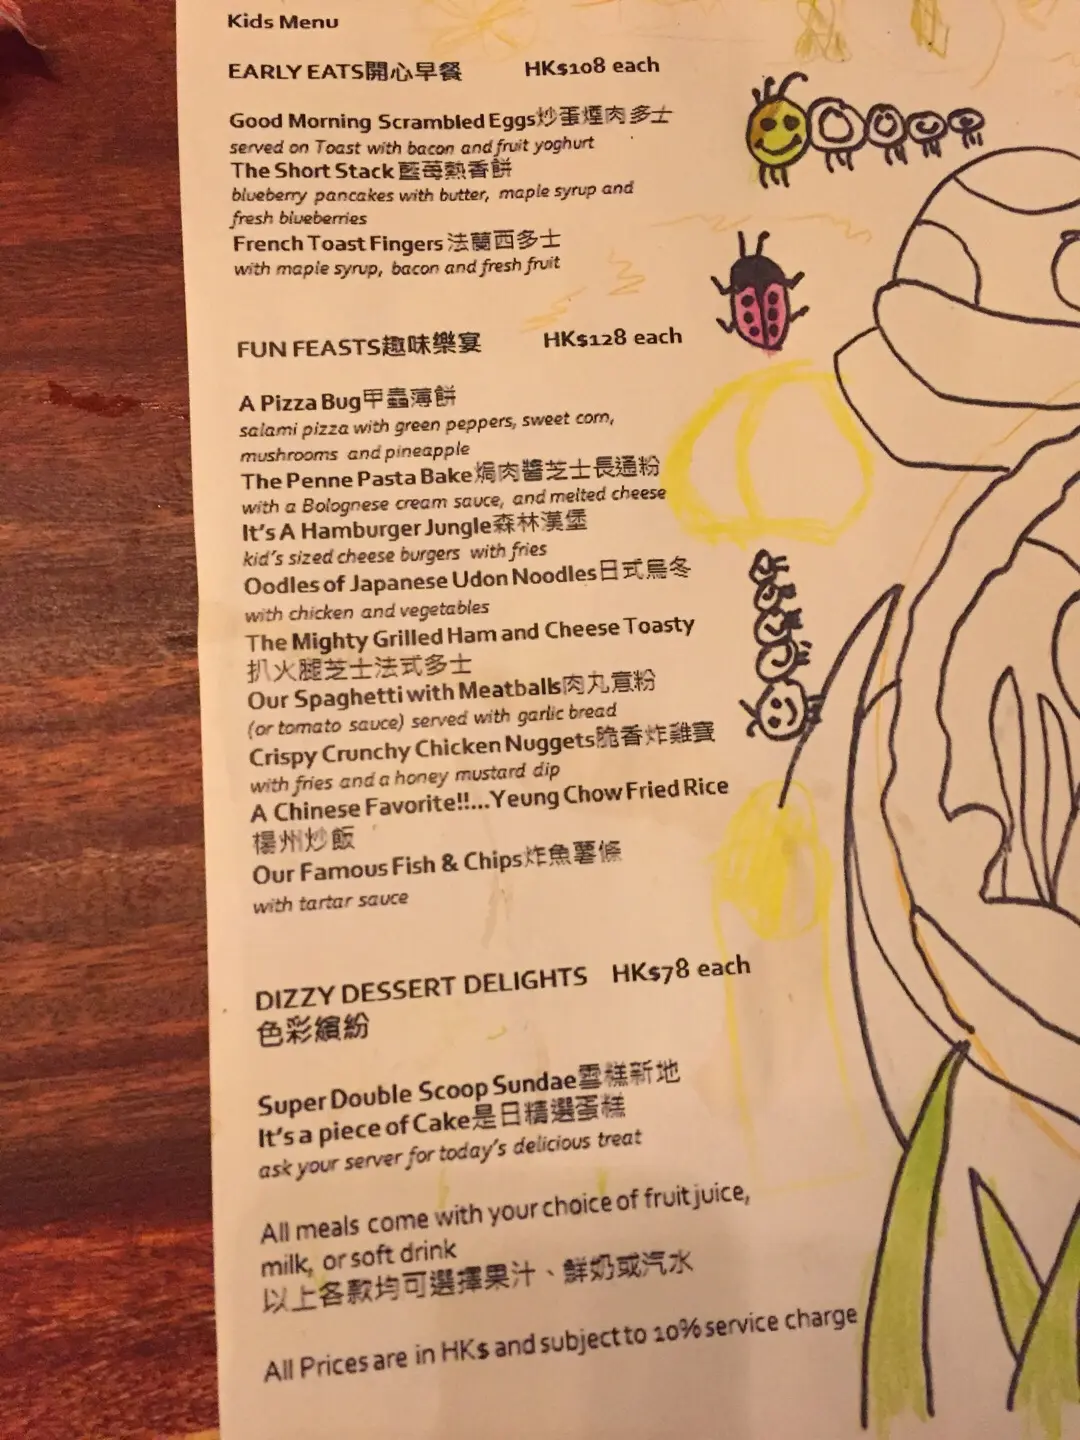 Kids Menu
EARLY EATS開心早餐 HK$108 each
Good Morning Scrambled Eggs炒蛋煙肉多士
served on Toast with bacon and fruit yoghurt
The Short Stack 藍莓熱香餅
blueberry pancakes with butter, maple syrup and
fresh blueberries
French Toast Fingers 法蘭西多士
with maple syrup, bacon and fresh fruit
FUN FEASTS趣味樂宴 HK$128 each
A Pizza Bug甲蟲薄餅
salami pizza with green peppers, sweet corn,
mushrooms and pineapple
The Penne Pasta Bake焗肉醬芝士長通粉
with a Bolognese cream sauce, and melted cheese
It's A Hamburger Jungle森林漢堡
kid's sized cheese burgers with fries
Oodles of Japanese Udon Noodles日式烏冬
with chicken and vegetables
The Mighty Grilled Ham and Cheese Toasty
扒火腿芝士法式多士
Our Spaghetti with Meatballs肉丸意粉
(or tomato sauce) served with garlic bread
Crispy Crunchy Chicken Nuggets脆香炸雞寶
with fries and a honey mustard dip
A Chinese Favorite!!...Yeung Chow Fried Rice
楊州炒飯
Our Famous Fish & Chips炸魚薯條
with tartar sauce
DIZZY DESSERT DELIGHTS HK$78 each
色彩繽紛
Super Double Scoop Sundae雪糕新地
It's a piece of Cake是日精選蛋糕
ask your server for today's delicious treat
All meals come with your choice of fruit juice,
milk, or soft drink
以上各款均可選擇果汁、鮮奶或汽水
All Prices are in HK$ and subject to 10% service charge